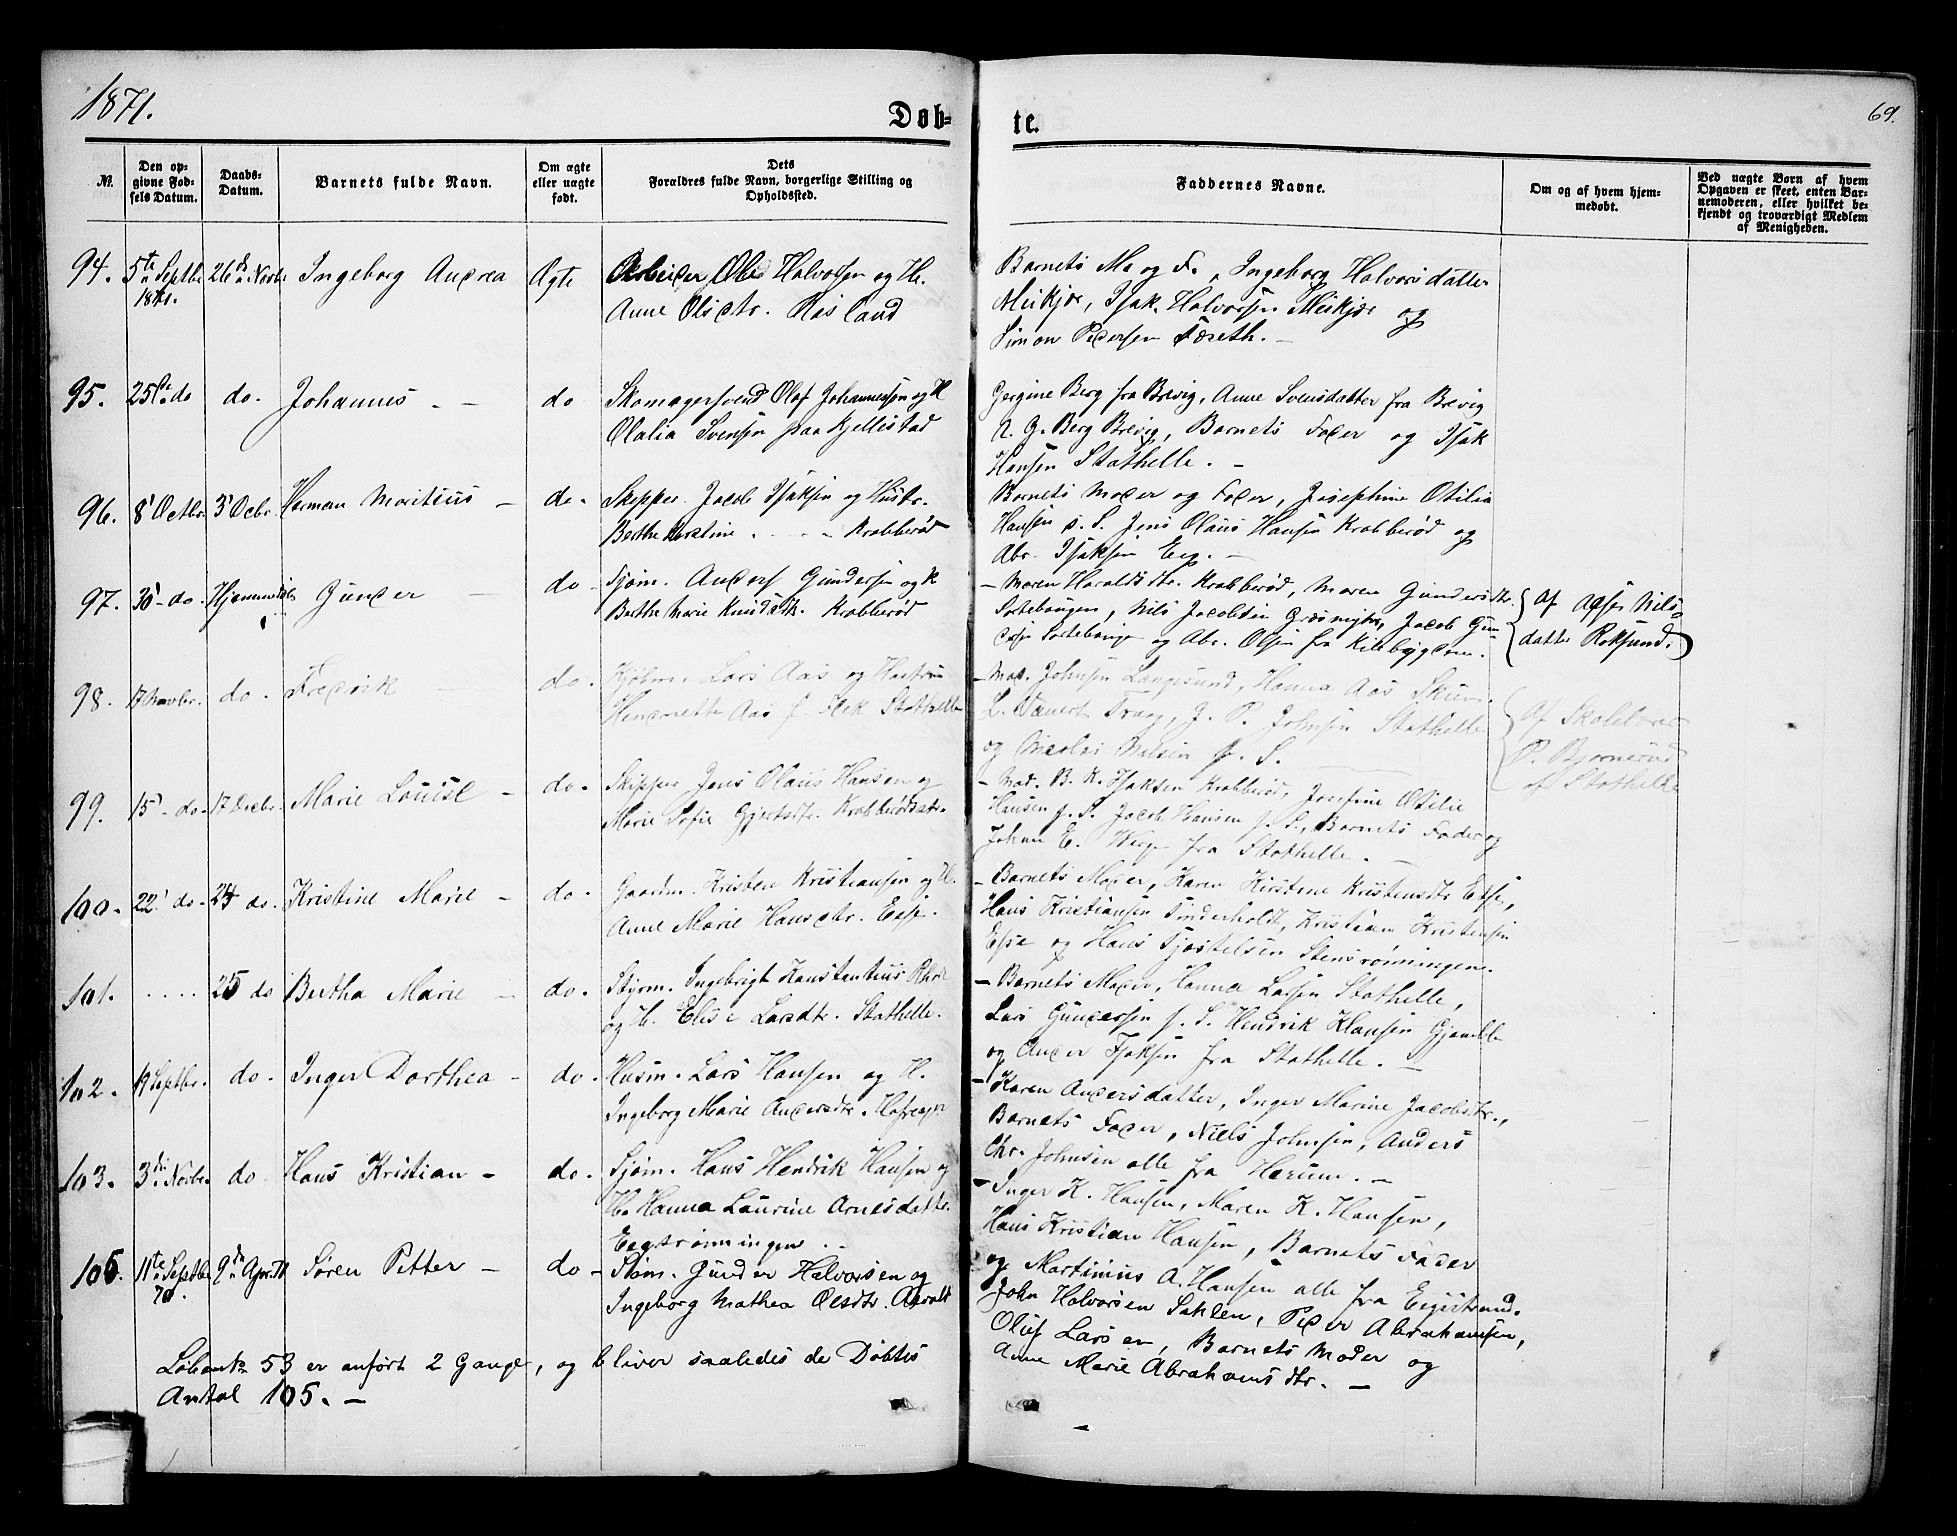 1871.
Døb-
te.
69.
№.
Den op-
givne Fød-
sels Datum.
Daabs-
Datum.
Barnets fulde Navn.
Om ægte
eller uægte
født.
Dets
Forældres fulde Navn, borgerlige Stilling og
Opholdssted.
Faddernes Navne.
Om og af hvem hjem-
medøbt.
Ved uægte Børn af hvem
Opgaven er skeet, enten Bar-
nemoderen, eller hvilket be-
kjendt og troværdigt Medlem
af Menigheden.
94. 5te Septbr 1871. 26de Novbr Ingeborg Andrea Ægte Arbeider Ole Halvorsen og H.
Anne Olsdtr. Rosland
Barnets Mo og F., Ingeborg Halvorsdatter
Meikjær, Isak Halvorsen Meikjær og
Simon Pedersen Foreth. -
95. 25de do do. Johannes - - do Skomagersvend Olaf Johannessen og H
Olalia Svensen paa Kjellestad
Gergine Berg fra Brevig, Anne Svensdatter fra Brevig
A. G. Berg Brevig, Barnets Fader og Isak
Hansen Stathelle. -
96. 8' Octbr. 3' Debr. Herman Moritius - do. Skipper Jacob Isaksen og Hustr.
Berthe Kirstine . . . . - Krabberød
Barnets Moder og Fader, Josephine Otilia
Hansen s. S. Jens Olaus Hansen Krabberød og
Abr. Isaksen Eeg. -
97. 30' - do. Hjemmedøbt Gunder - do - Sjøm. Anders Gundersen og H
Berthe Marie Knudsdtr. Krabberød
- Maren Haraldsdtr. Krabberød, Maren Gundersdtr.
Sortebaugen, Nils Jacobsen Græsmyhr, Jacob Gun-
dersen Sortebaugen og Abr. Olsen fra Kilebygden.
Af Nils-
datter Roksund.
98. 17 Novbr. do. Fredrik - do. Lars Aas og Hustru
Henriette Aas f. Stathelle
- Mad. Johnsen Langesund, Hanna Aas
J. P. Johnsen Stathelle
og Nicolai f. S.
Af Skolelærer
P. Bjørnerød
af Stathelle
99. 15' - do. 17 Decbr. Marie Louise - do. Skipper Jens Olaus Hansen og
Marie Sofie Gjertsdtr. Krabberød
- Mad. B. K. Isaksen Krabberød, Josefine Otilie
Hansen f. S. Jacob Hansen f. S., Barnets Fader og
Johan E. fra Stathelle. -
100. 22' do. 24 do. Kristine Marie - do. Gaardm. Kristen Kristiansen og H.
Anne Marie Hansdtr.
- Barnets Moder, Karen Kirstine Kristensdtr
Hans Kristiansen Tinderholt, Kristian Kristensen
og Hans Tjøstelsen Stensrønningen.
101. . . . . 25 do Bertha Marie - do. Styrm. Ingebrigt Konstantius
og H. Elise Larsdtr. Stathelle.
- Barnets Moder, Hanna Larsen Stathelle,
Lars Gundersen f. S. Hendrik Klausen Gjemble
og Ander Isaksen fra Stathelle. -
102. 19 Septbr. do. Inger Dorthea - do. Husm. Lars Hansen og H.
Ingeborg Marie Andersdtr.
- Karen Andersdatter, Inger Marine Jacobsdtr.,
Barnets Fader, Niels Johnsen, Anders
Chr. Johnsen alle fra Hærum. -
103. 3die Novbr. do Hans Kristian - do. Sjøm. Hans Hendrik Hansen og
H. Hanna Laurine Arnesdattr.
Eegsrønningen . .
- Inger K. Hansen, Maren K. Hansen,
Hans Kristian Hansen, Barnets Fader
og Martinius A. Hansen alle fra
105. 11te Septbr 70. 9de April Søren Petter - do - Sjøm. Gunder Halvorsen og
Ingeborg Mathea Olsdtr. Aavald
John Halvorsen Peder Abrahamsen,
Oluf Larsen, Barnets Moder og
Anne Marie Abrahamsdtr. -
Løbenr. 53 er anført 2 Gange, og bliver saaledes de Døbtes
Antal 105. -